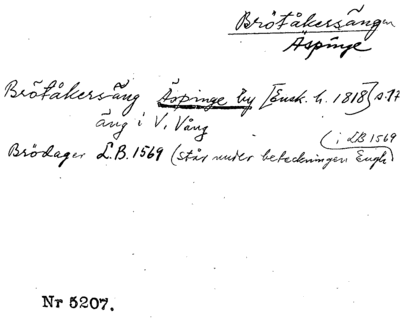 Brötåkersängen
Äspinge
Brötåkersäng Äspinge by [Ensk. h. 1818] s. 17
äng i V. Vång
(i LB 1569
Brödager L.B. 1569 (står under beteckningen Engh)
Nr 5207.